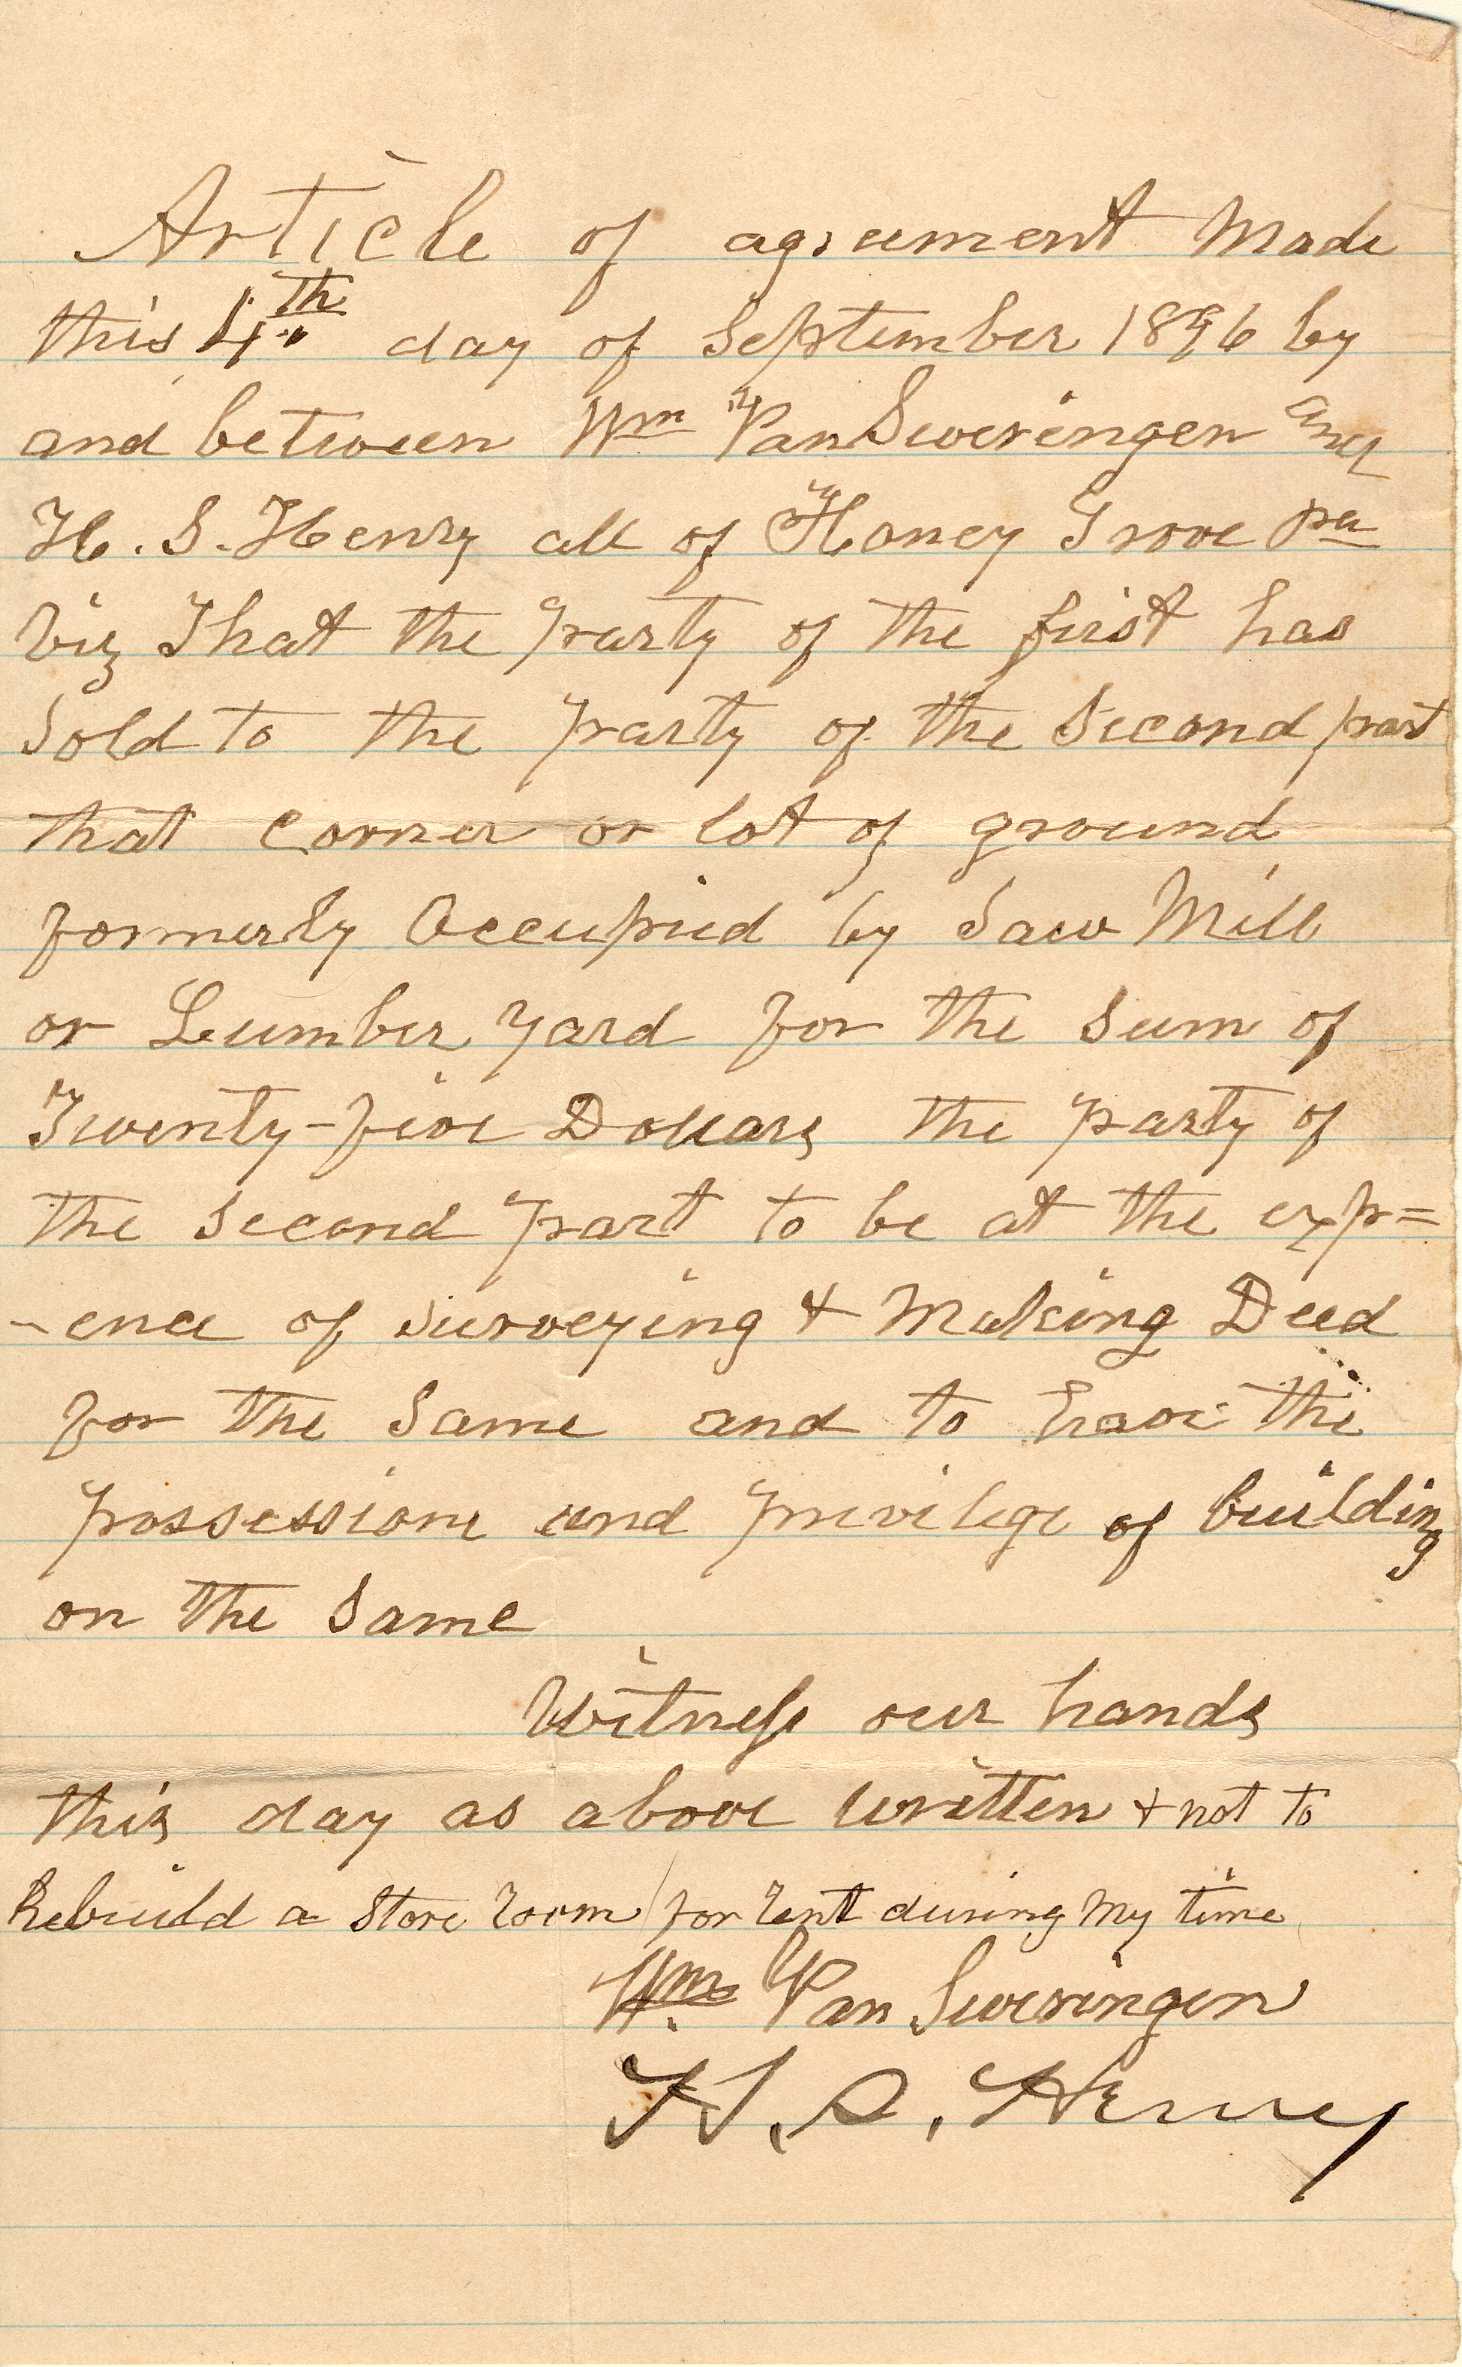 Article of agreement Made
this 4th day of September 1896 by
and between Wm VanSweringen and
H. S. Henry all of Honey Grove Pa
Viz That the Party of the first has
Sold to the party of the Second part
that Corner or lot of ground
formerly Occupied by Saw Mill
or Lumber yard for the Sum of
Twenty-five Dollars the party of
the Second part to be at the exp=
-ence of surveying & Making Deed
for the Same and to have the
possession and privilege of building
on the Same
Witness our hands
this day as above written & not to
Rebuild a Store Room for Rent during My time
Wm Van Sweringen
H. S. Henry